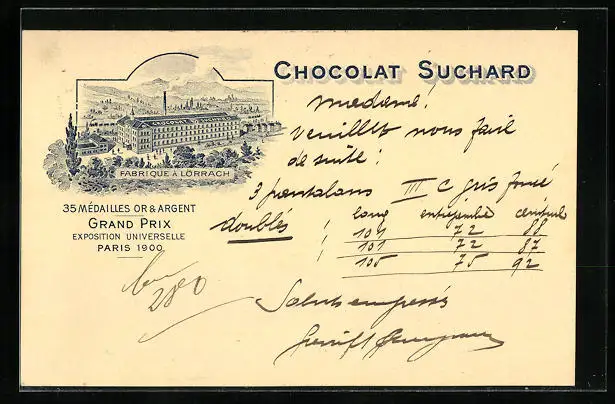 CHOCOLAT SUCHARD
FABRIQUE À LÖRRACH
35 MÉDAILLES OR & ARGENT
GRAND PRIX
EXPOSITION UNIVERSELLE
PARIS 1900
Madame!
veuillez nous faire
de suite:
3 pantalons III c gris foncé
doublés
long entrejambe ceinture
101 72 88
101 72 87
105 75 92
280
Saluts empressés